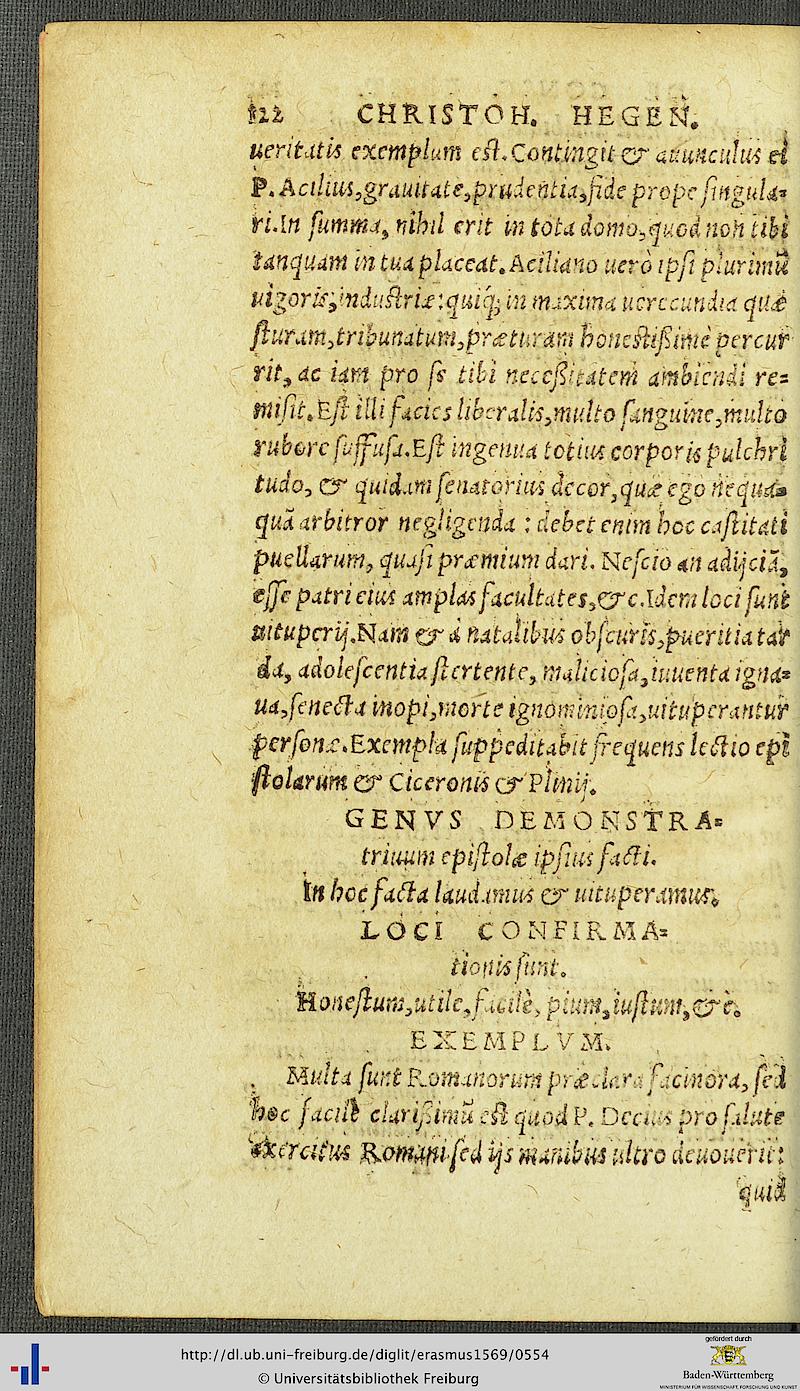 122 CHRISTOH. HEGEN.
ueritatis exemplum eſt. Contingit & auunculus ei
P. Acilius, grauitate, prudentia, fide prope ſingula=
ri. In ſumma, nihil erit in tota domo, quod non tibi
tanquam in tua placeat. Aciliano uerò ipſi plurimū
uigoris, induſtriæ: quiq́; in maxima uerecundia quæ
ſturam, tribunatum, præturam honeſtißimè percur
rit, ac iam pro ſe tibi neceßitatem ambiendi re=
miſit. Eſt illi facies liberalis, multo ſanguine, multo
rubore ſuffuſa. Eſt ingenua totius corporis pulchri
tudo, & quidam ſenatorius decor, quæ ego nequa=
quã arbitror negligenda : debet enim hoc caſtitati
puellarum, quaſi præmium dari. Neſcio an adijciã,
eſſe patri eius amplas facultates, &c. Idem loci ſunt
uituperij. Nam & à natalibus obſcuris, pueritia tar
da, adoleſcentia ſtertente, malicioſa, iuuenta igna=
ua, ſenecta inopi, morte ignominioſa, uituperantur
perſonæ. Exempla ſuppeditabit frequens lectio epi
ſtolarum & Ciceronis & Plinij.
GENVS DEMONSTRA=
triuum epiſtolæ ipſius facti.
In hoc facta laudamus & uituperamus.
LOCI CONFIRMA=
tionis ſunt.
Honeſtum, utile, facilè, pium, iuſtum, &c.
EXEMPLVM.
Multa ſunt Romanorum præclara facinora, ſed
hoc facilè clarißimū eſt quod P. Decius pro ſalute
exercitus Romani ſed ijs manibus ultro deuouerit:
quid
gefördert durch
http://dl.ub.uni-freiburg.de/diglit/erasmus1569/0554
© Universitätsbibliothek Freiburg
Baden-Württemberg
MINISTERIUM FÜR WISSENSCHAFT, FORSCHUNG UND KUNST